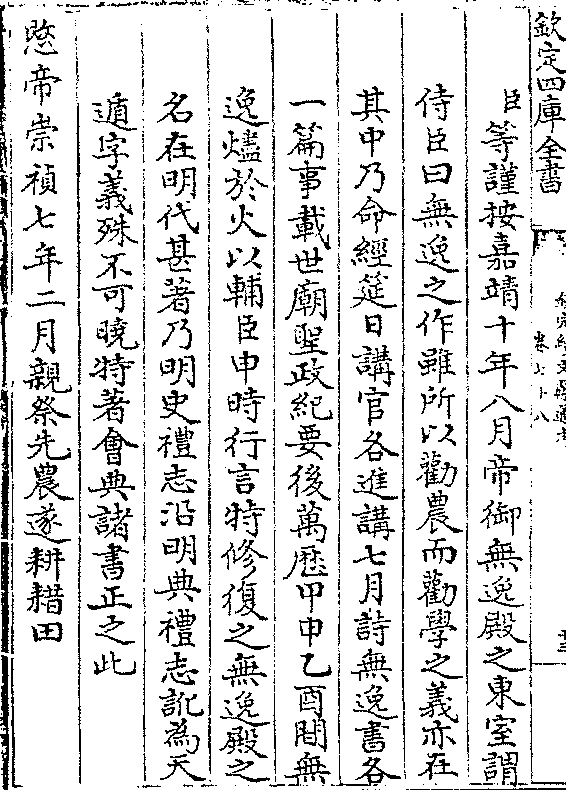 欽定四庫全書
卷七十八
臣等謹按嘉靖十年八月帝御無逸殿之東室謂
侍臣曰無逸之作雖所以勸農而勸學之義亦在
其中乃命經筵日講官各進講七月詩無逸書各
一篇事載世廟聖政紀要後萬歷甲申乙酉間無
逸燼於火以輔臣申時行言特修復之無逸殿之
名在明代甚著乃明史禮志沿明典禮志訛為天
遁字義殊不可曉特著會典諸書正之此
愍帝崇禎七年二月親祭先農遂耕耤田